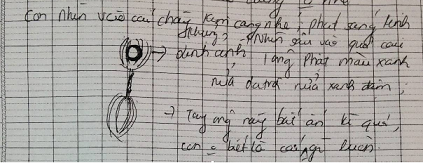 Con nhìn vào cái chày kim cang nhé, phát sáng kinh
khủng, Nhìn sâu vào quả cầu
→ đánh anh lông phát màu xanh
nửa da trời nửa xanh đậm,
→ Tay ông này bắt ấn kì quá,
con = biết là cái gì luôn.